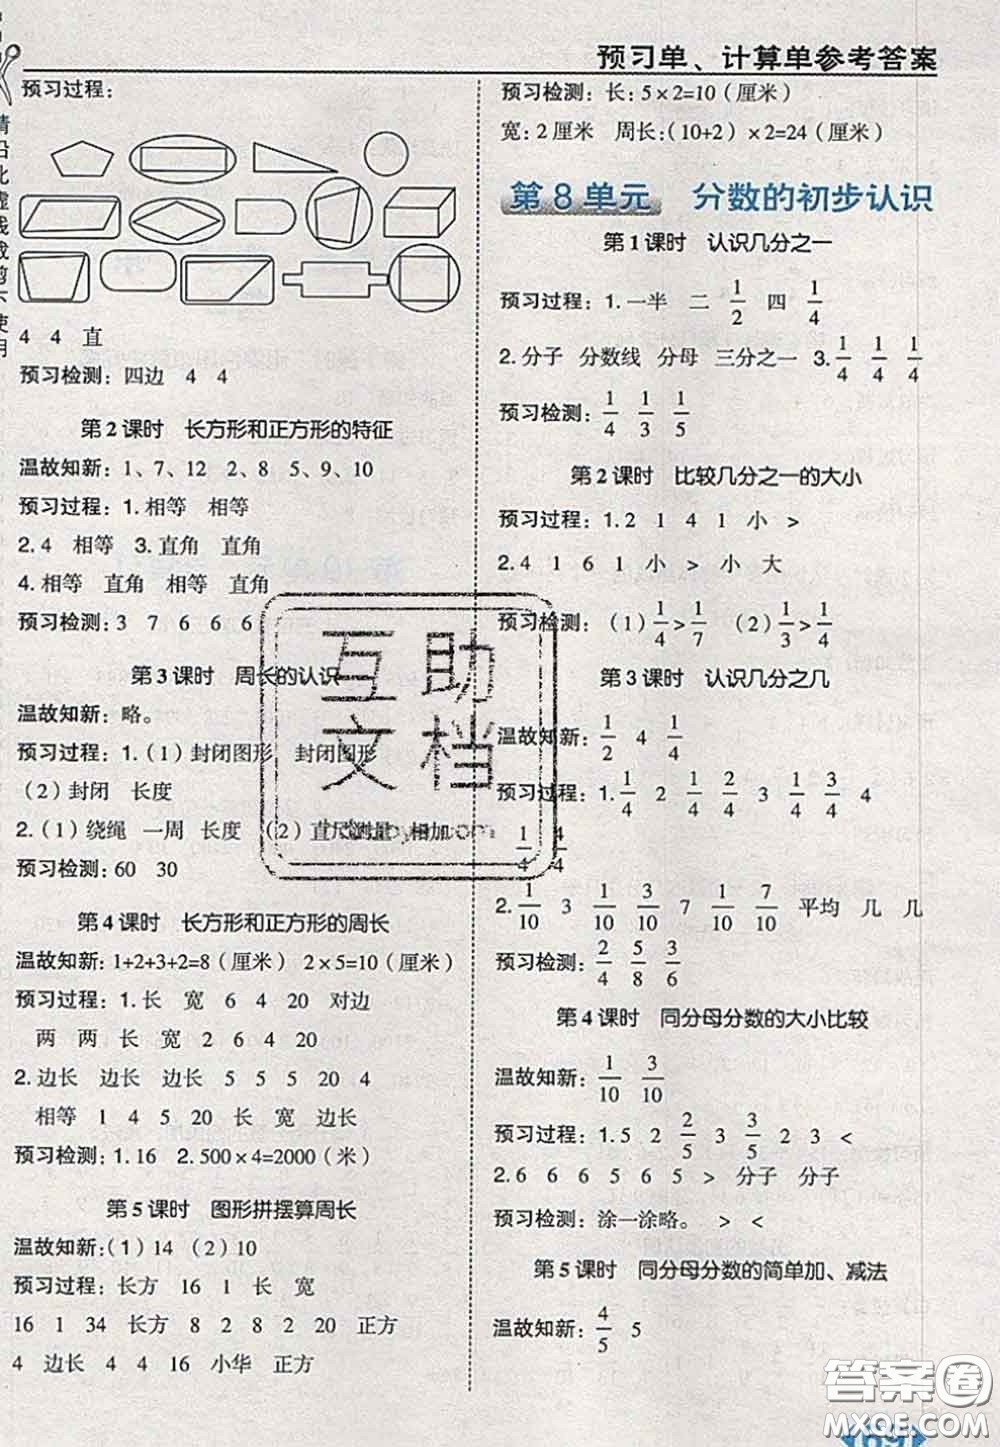 预习单、计算单参考答案
请沿此虚线裁剪下使用
预习过程：
4 4 直
预习检测：四边 4 4
第2课时 长方形和正方形的特征
温故知新：1、7、12 2、8 5、9、10
预习过程：1.相等 相等
2.4 相等 3.直角 直角
4.相等 直角 相等 直角
预习检测：3 7 6 6 6
第3课时 周长的认识
温故知新：略。
预习过程：1.（1）封闭图形 封闭图形
（2）封闭 长度
2.（1）绕绳 一周 长度 （2）直尺测量 相加
预习检测：60 30
第4课时 长方形和正方形的周长
温故知新：1+2+3+2=8（厘米） 2×5=10（厘米）
预习过程：1.长 宽 6 4 20 对边
两 两 长 宽 2 6 4 20
2.边长 边长 边长 5 5 5 20 4
相等 1 4 5 20 长 宽 边长
预习检测：1.16 2.500×4=2000（米）
第5课时 图形拼摆算周长
温故知新：（1）14 （2）10
预习过程：长方 16 1 长 宽
16 1 34 长方 8 2 8 2 20 正方
4 边长 4 4 16 小华 正方
预习检测：长：5×2=10（厘米）
宽：2厘米 周长：（10+2）×2=24（厘米）
第8单元 分数的初步认识
第1课时 认识几分之一
预习过程：1.一半 二 1/2 四 1/4
2.分子 分数线 分母 三分之一 3.1/4 1/4 1/4
预习检测：1/4 1/3 1/5
第2课时 比较几分之一的大小
预习过程：1.2 1 4 1 小 >
2.4 1 6 1 小 > 小 大
预习检测：（1）1/4>1/7 （2）1/3>1/4
第3课时 认识几分之几
温故知新：1/2 4 1/4
预习过程：1.1/4 2 1/4 2/4 3 1/4 3/4 4
1/4 4/4
2.1/10 3 1/10 3/10 7 1/10 7/10 平均 几 几
预习检测：2/4 5/8 3/6
第4课时 同分母分数的大小比较
温故知新：1/10 3/10
预习过程：1.5 2 2/5 3 3/5 2 3 <
2.6 6 6 5 6 5 > 分子 分子
预习检测：涂一涂略。 > <
第5课时 同分母分数的简单加、减法
温故知新：4/5 5
互助
文档
答案圈
MXQE.COM